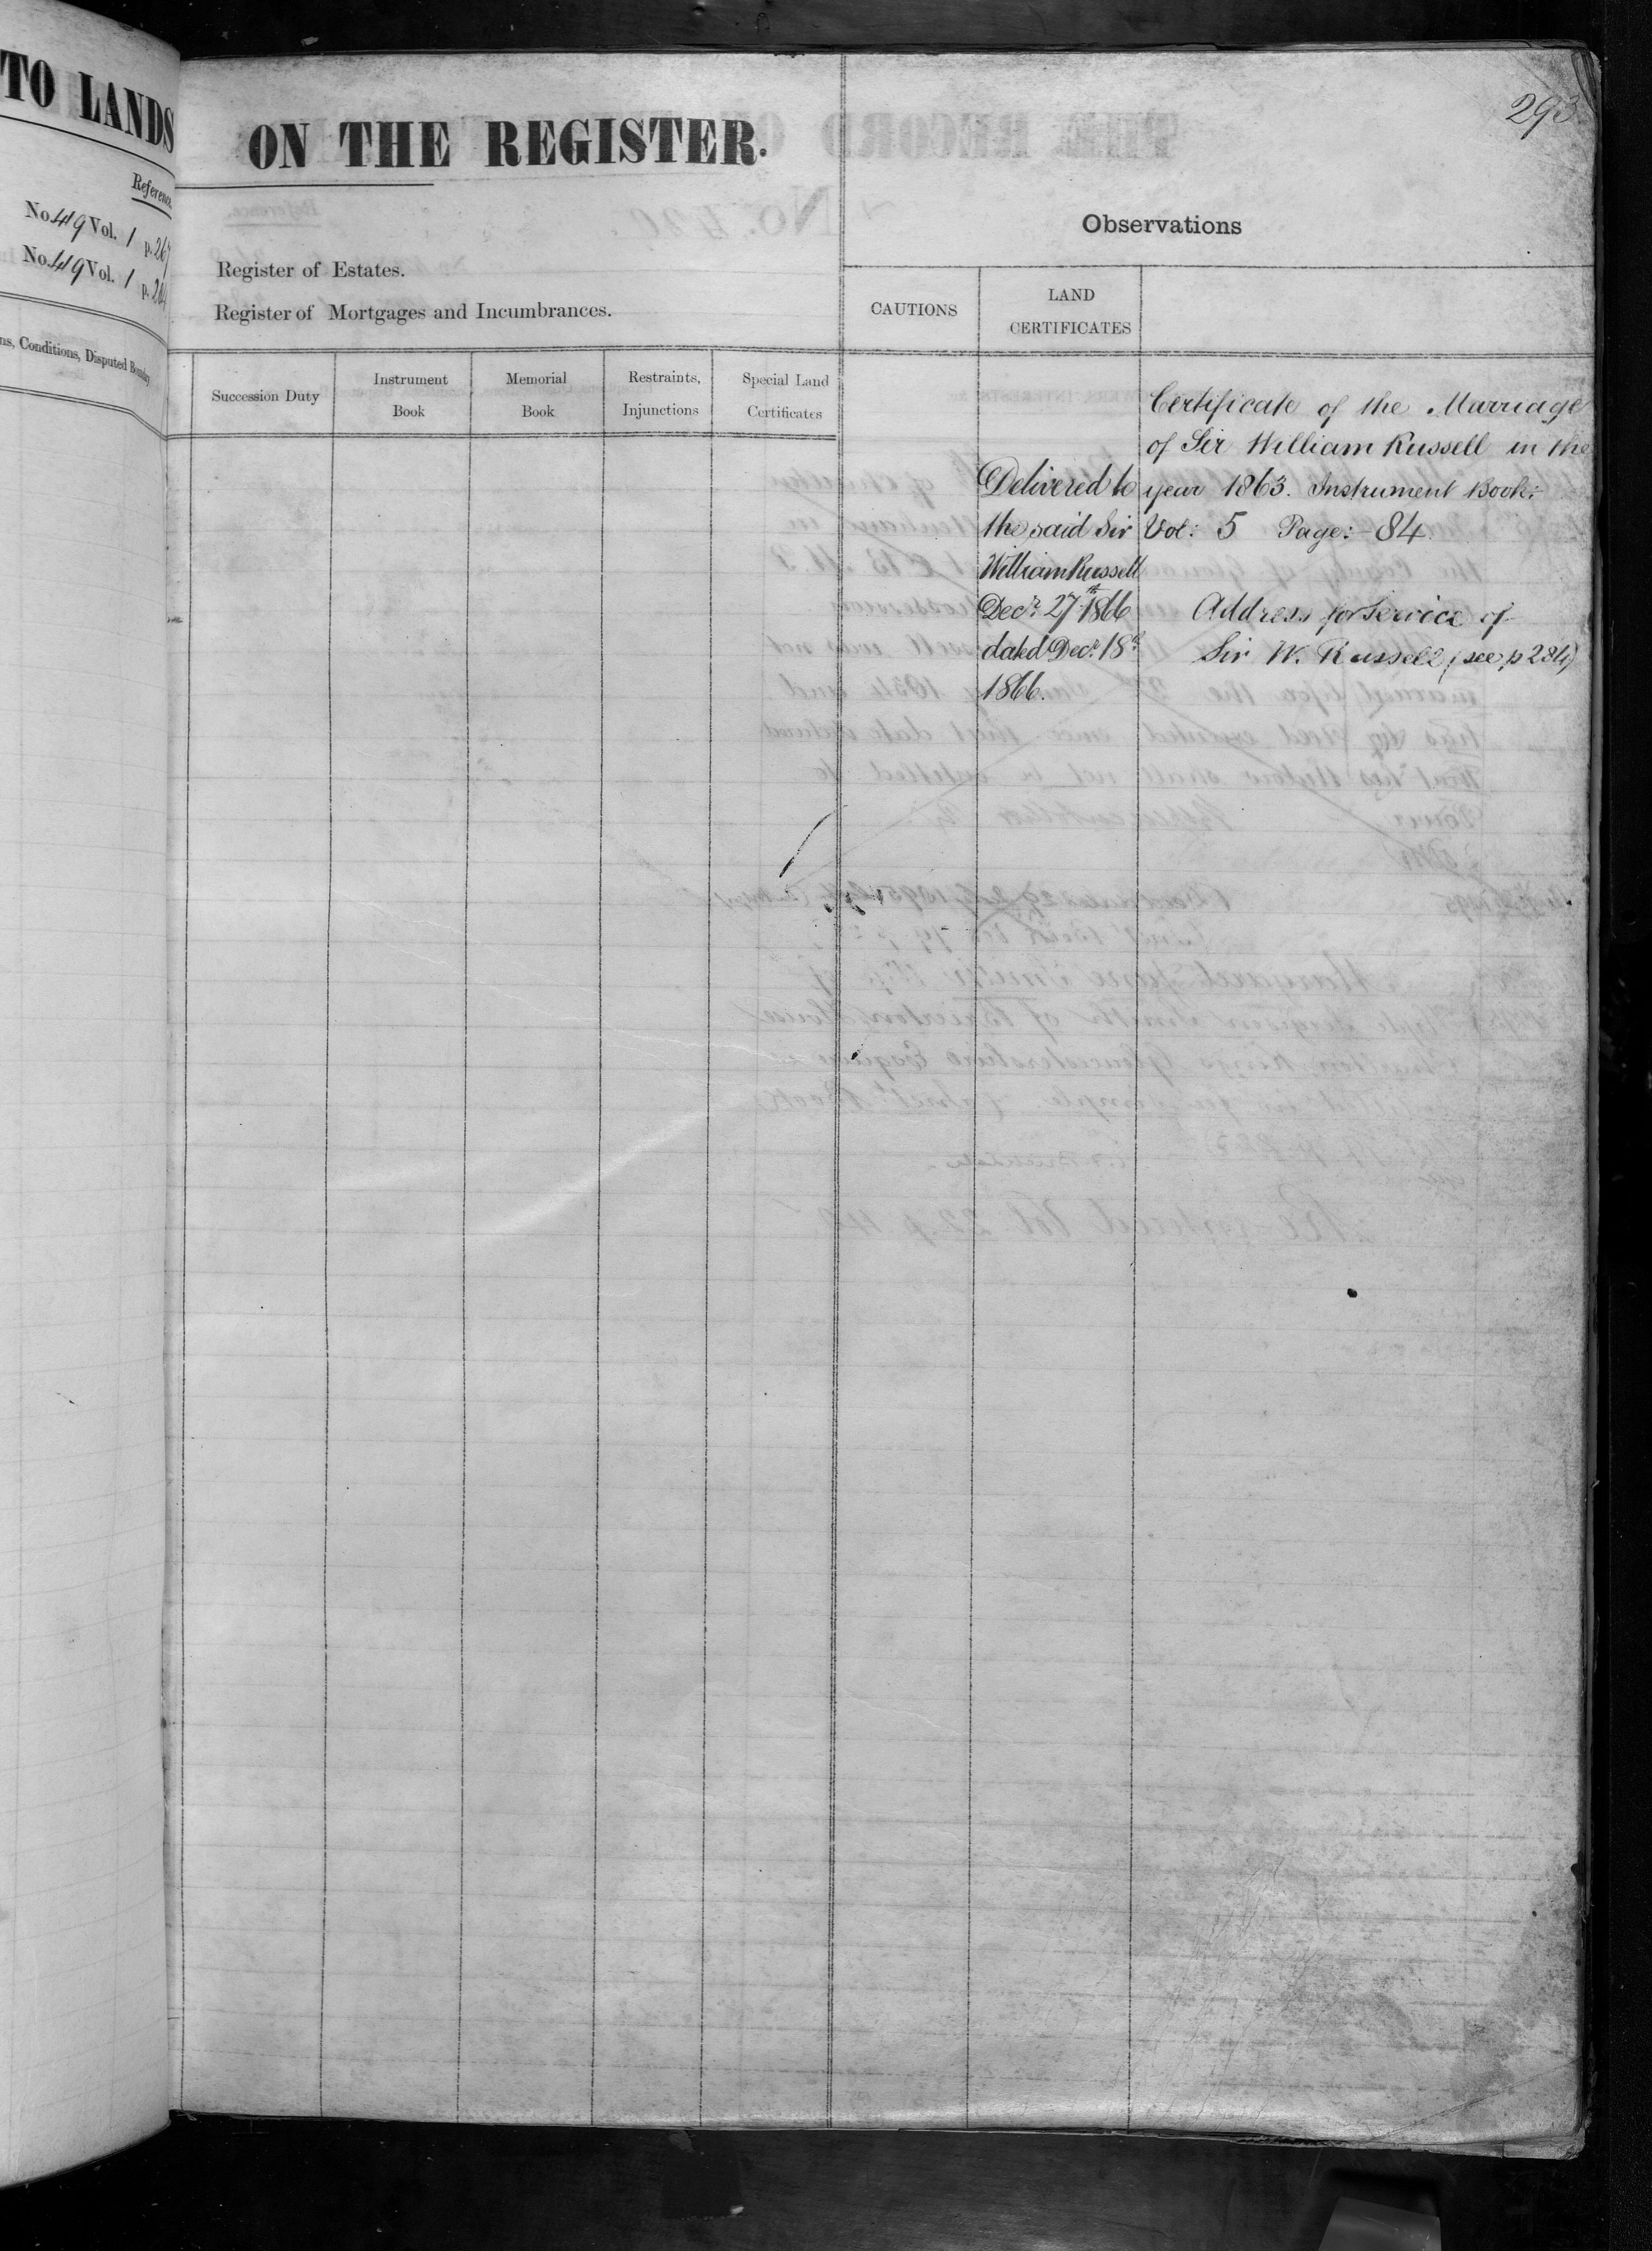 TO LANDS
Reference.
No 49 Vol. 1 p. 267
No. 49 Vol. 1
ns, Conditions, Disputed Boundary
293
ON THE REGISTER.
Register of Estates.
Register of Mortgages and Incumbrances.
Observations
CAUTIONS
LAND
CERTIFICATES
Succession Duty
Instrument
Book
Memorial
Book
Restraints,
Injunctions
Special Land
Certificates
Delivered to
the said Sir
William Russell
Decr. 27th 1866
dated Decr. 18th
1866.
Certificate of the Marriage
of Sir William Russell in the
year 1863. Instrument Book:
Vol: 5 Page:- 84.
Address for Service of
Sir W. Russell (see p 284)